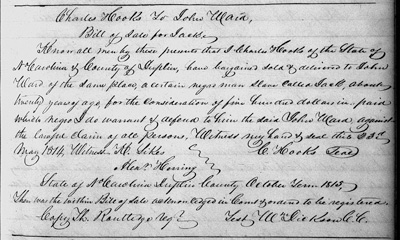 Charles Hooks To John Ward,
Bill of Sale for Jack.
Know all men by these presents that I Charles Hooks of the State of
N. Carolina & County of Duplin, have bargained sold & delivered to John
Ward of the same place, a certain negro man Slave Called Jack, about
twenty years of age for the Consideration of five hundred dollars in paid
which negro I do warrant & defend to him the said John Ward against
the Lawful claim of all persons, Witness my hand & seal this
May 1814, Witness C. Hooks Seal
Alexr. Herring
State of N. Carolina Duplin County October Term 1815.
Then was the within Bill of Sale acknowledged in Court & ordered to be registered.
Copy Test W. Dickson C.C.